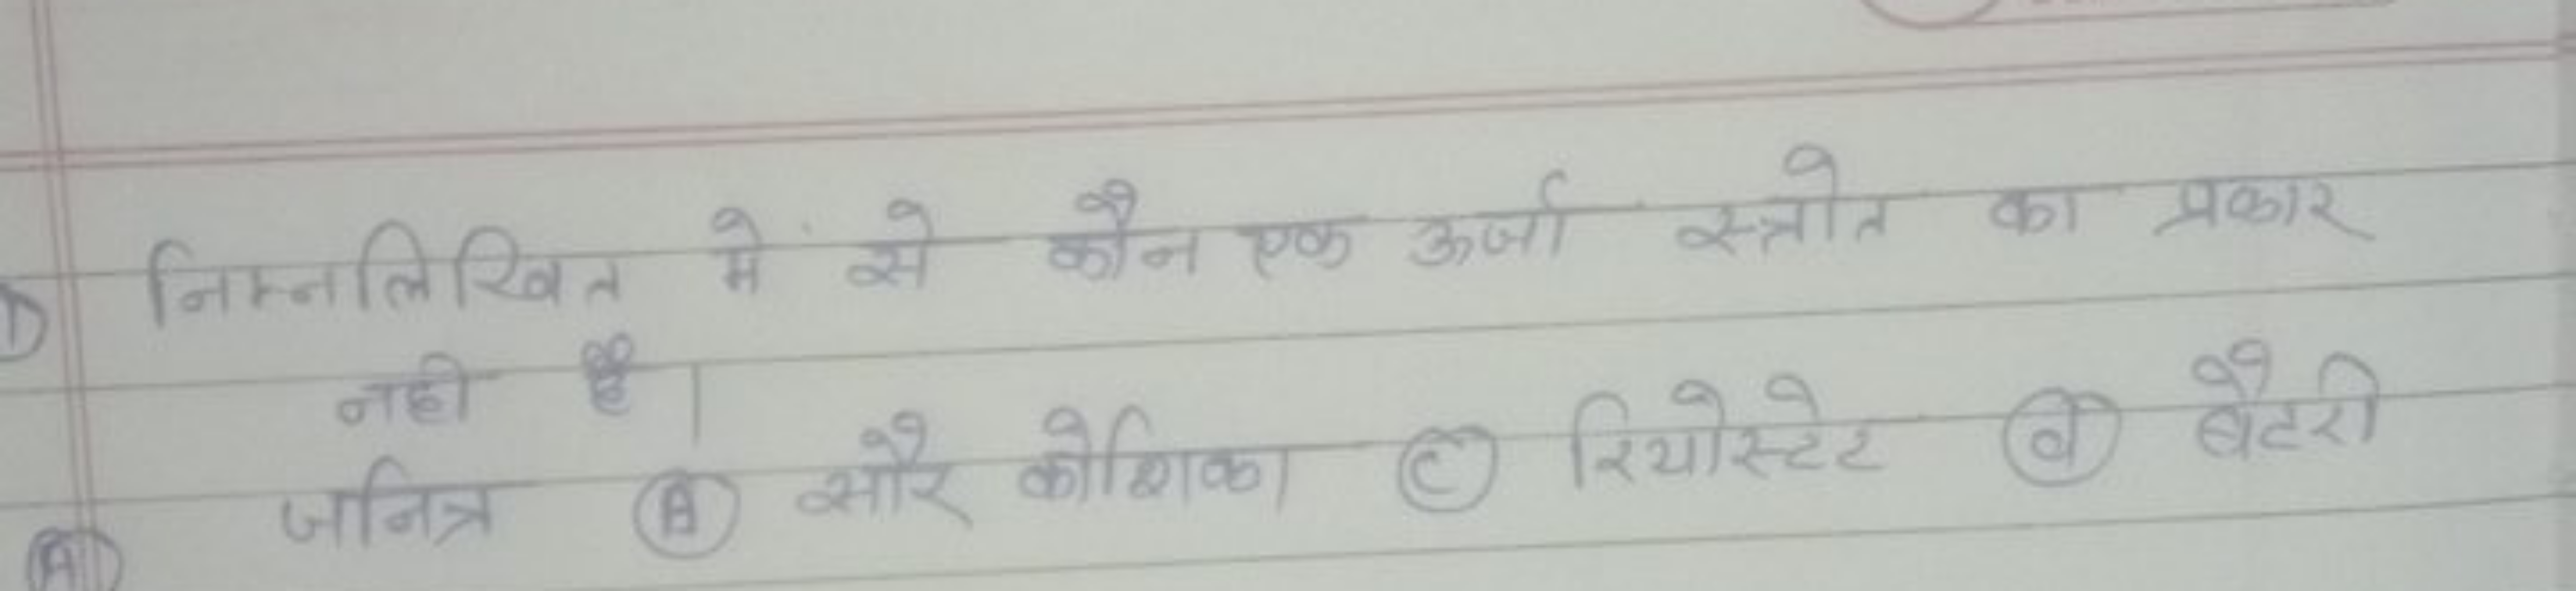 निम्नलिखित मे से कौन एक ऊर्जा स्त्रोत का प्रकार
नही है।
(A) जनित्र (B) सौर कोशिका (C) रियोस्टेट (d) बैटरी